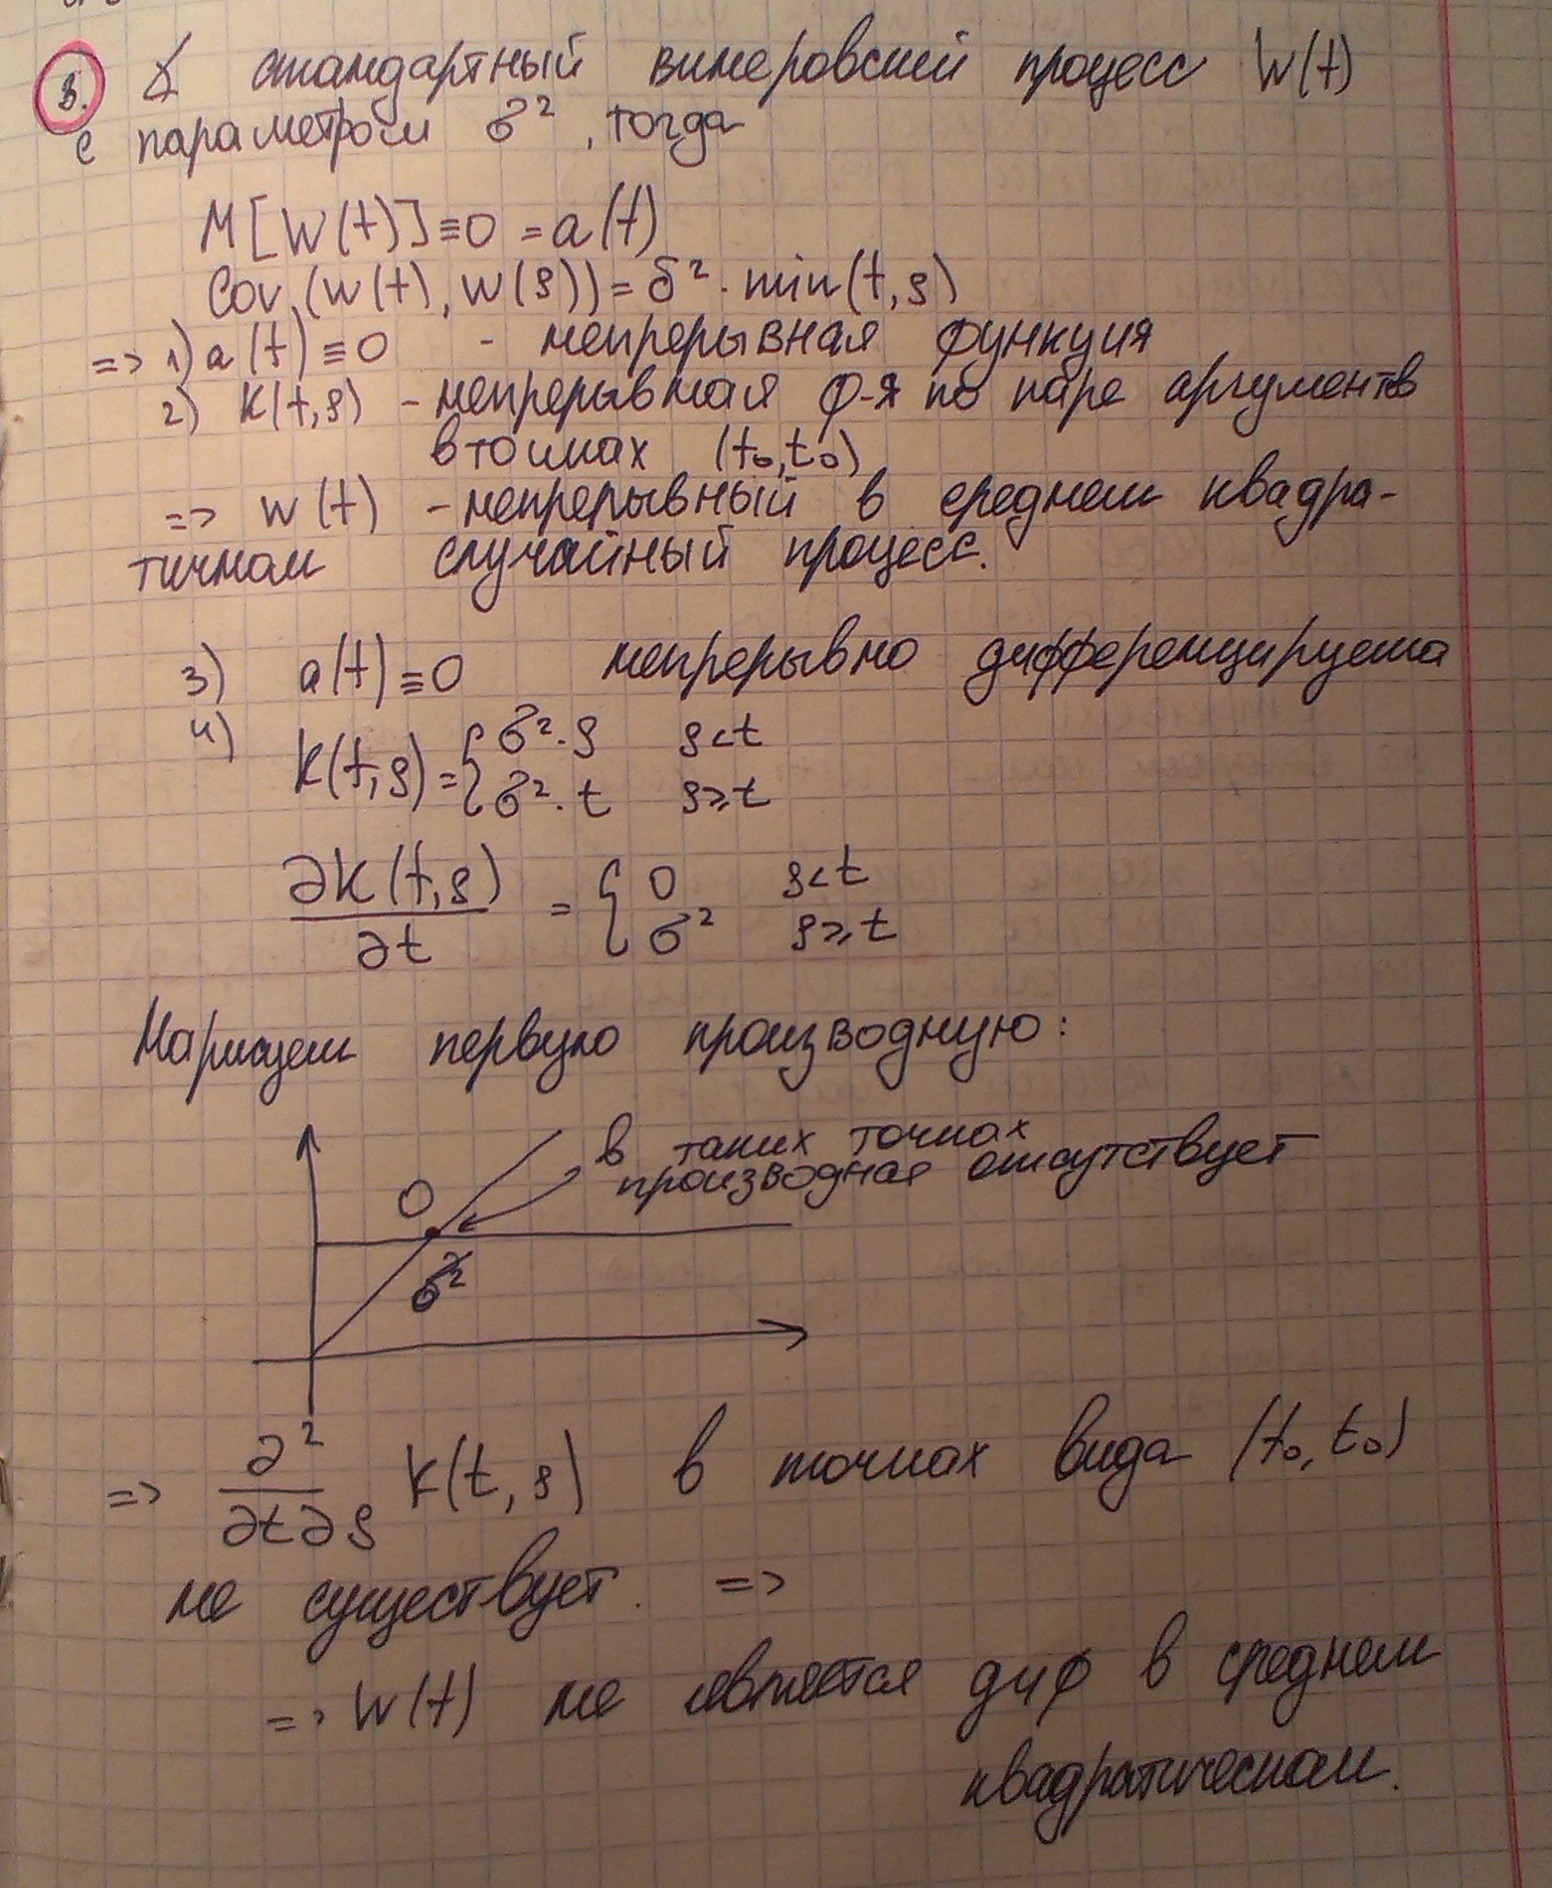 В. ∡ стандартный винеровский процесс W(t)
с параметром σ², тогда
M[W(t)]≡0 = a(t)
Cov(W(t), W(s)) = σ² · min(t, s)
=> 1) a(t) ≡ 0 - непрерывная функция
2) K(t,s) - непрерывная ф-я по паре аргументв
в точках (t₀,t₀)
=> W(t) - непрерывный в среднем квадра-
тичном случайный процесс.
3) a(t) ≡ 0 непрерывно дифференцируема
4)
K(t,s) = { σ²·s s<t
σ²·t s≥t
∂K(t,s)/∂t = { 0 s<t
σ² s≥t
Нарисуем первую производную:
в таких точках
производная отсутствует
0
σ²
=> ∂²/∂t∂s K(t,s) в точках вида (t₀,t₀)
не существует. =>
=> W(t) не является диф в среднем
квадратическом.